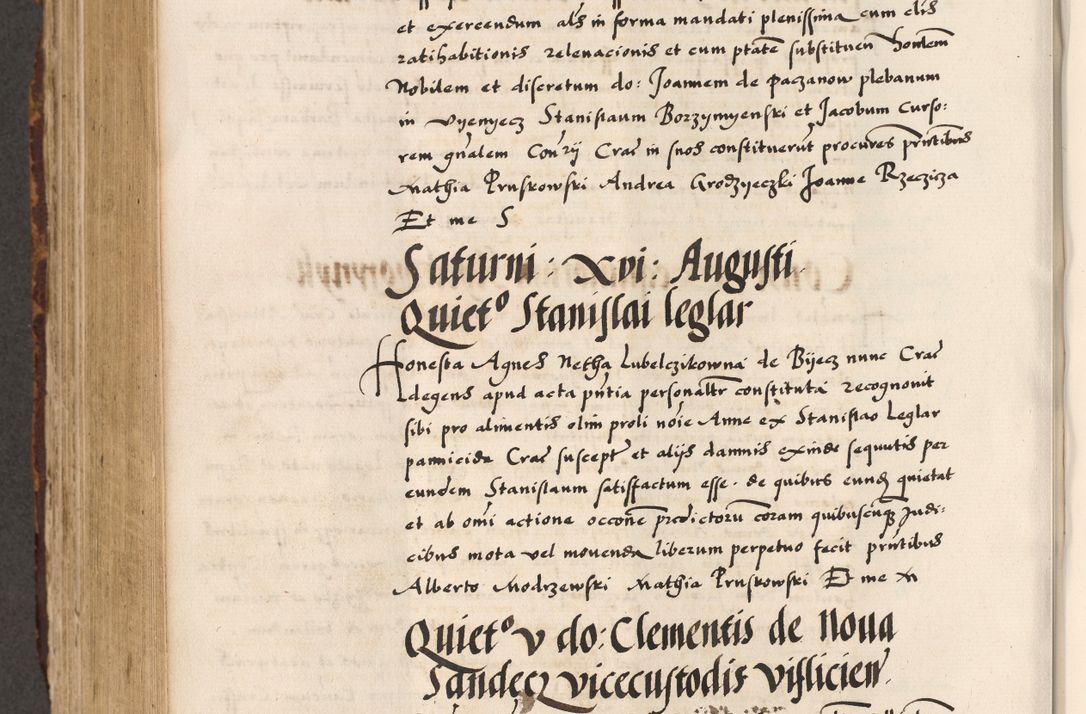 et exercendum als in forma mandati plenissima cum clis
ratihabitionis relevacionis et cum ptate substituen
Nobilem et discretum do: Joannem de Paczanow plebanum
in Vyenyecz Stanislaum Borzymyenski et Jacobum Curso:
rem gnalem Conrij Crac in suos constituerut procures pntibus
Mathia Pruskowski Andrea Grodzyeczki Joanne Rzecziza
Et me S
Saturni : xvi : Augusti
Quieto Stanislai leglar
Honesta Agnes Netha Lubelczikowna de Bijecz nunc Crac
degens apud acta pntia personaltr constituta recognovit
sibi pro alimentis olim proli noie Anne ex Stanislao Leglar
pannicida Crac suscept et alijs damnis exinde sequutis per
eundem Stanislaum satisfactum esse. de quibus eundq quietat
et ab omi actione occone predictoru coram quibuscunq Judi:
cibus mota vel movenda liberum perpetuo fecit pntibus
Alberto Modrzewski Mathia Pruskowski Et me
Quieto v do: Clementis de Noua
Sandecz vicecustodis vislicien